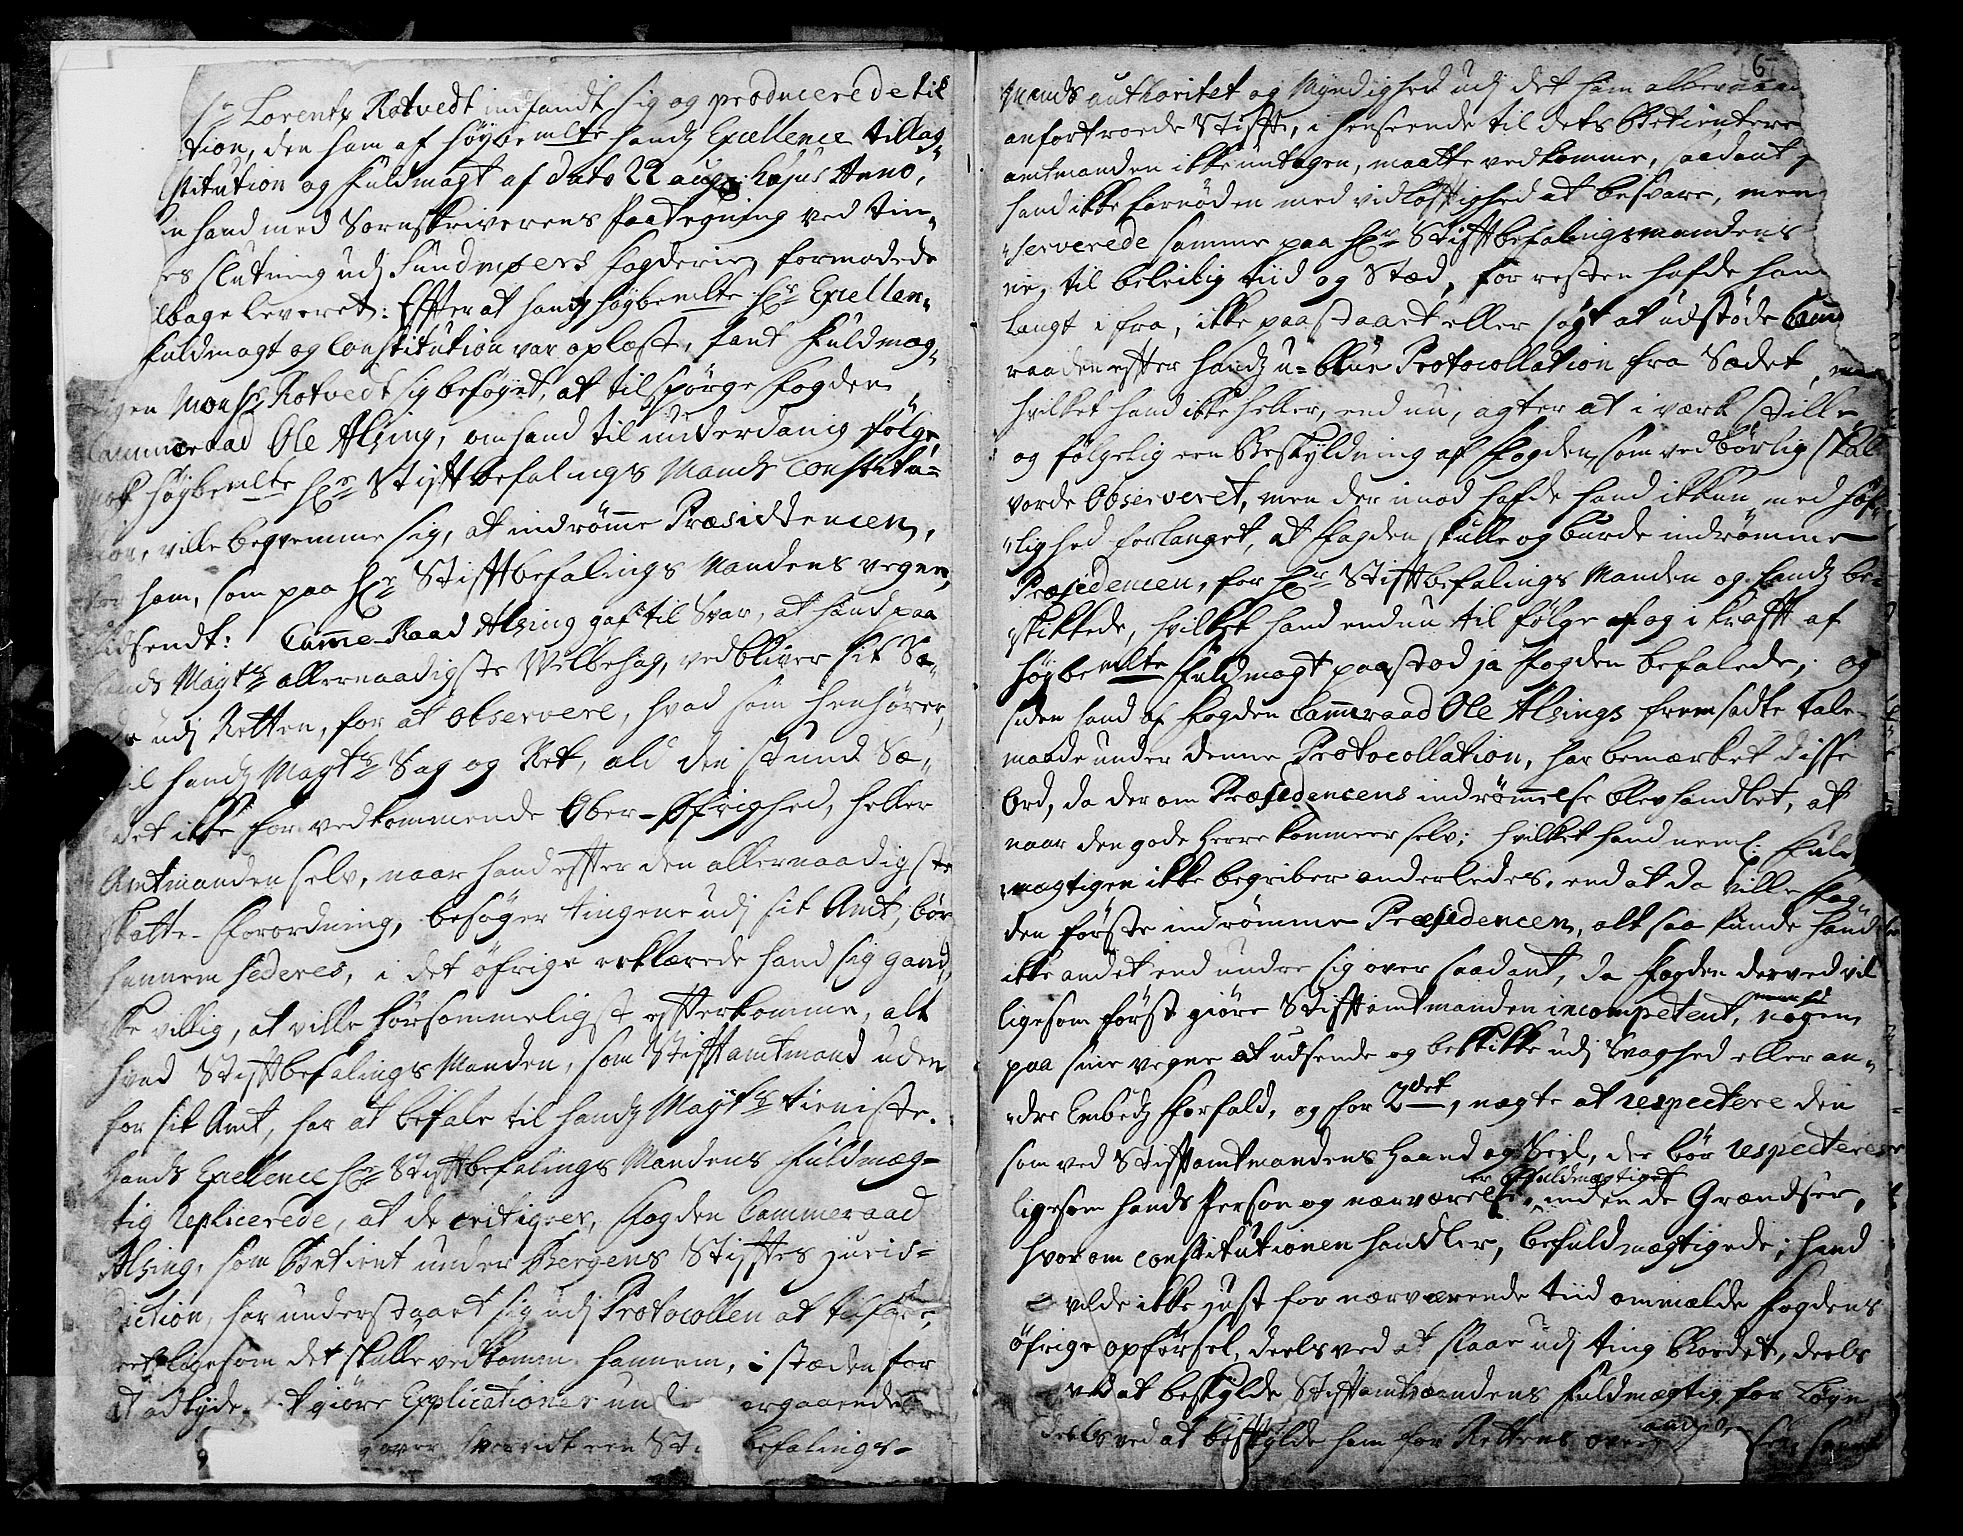 Sr Lorentz Rotvedt indfandt sig og producerede til
tion, den ham af høybemlte hands Excellence tillag-
stitution og fuldmagt af dato 22 aug: hujus Anno,
n hand med Sornskriverens Paategning ved tin-
es slutning udj Sundmøers fogderie, formodede
lbage leveret: Efter at hands høybemlte Hr Excellen-
fuldmagt og Constitution var oplæst, fandt fuldmæg-
tigen Monsr Rotvedt sig beføyet, at tilspörge fogden
Cammeraad Ole Alsing, om hand til underdanig følge
høybemlte Hr Stiftbefalings Mands Constitu-
tion, ville beqvemme sig, at indrömme Præsidencen,
for ham, som paa Hr Stiftbefalings Mandens vegne,
udsendt: Camme-Raad Alsing gaf til Svar, at hand paa
hands Maytts allernaadigste Velbehag, vedbliver sit Sæ-
de udj Retten, for at observere, hvad som henhører,
til hands Maytts Sag og Ret, ald den stund Sæ-
det ikke for vedkommende Ober-Øfrighed, heller
Amtmanden selv, naar hand efter den allernaadigste
Skatte-forordning, besøger tingene udj sit Amt, bør
hannem sederes, i det øfrige erklærede hand sig gand-
ske villig, at ville hørsommeligst efterkomme, alt
hvad Stiftbefalings Manden, som Stiftamtmand uden
for sit Amt, har at befale til hands Maytts tieniste.
Hands Excellence Hr Stiftbefalings Mandens fuldmæg-
tig replicerede, at de critiqver, fogden Cammeraad
Alsing, som Betient under Bergens Stiftes juris-
diction, har understaaet sig udj Protocollen at tilføre,
ligesom det skulle vedkomme hannem, i stæden for
at adlyde, at giøre Explicationer un argaaende
over hvorvidt een Sti befalings-
6
Mands authoritet og Myndighed udj det ham allernaad
anfortroede Stift, i henseende til dets Betientere
amtmanden ikke undtagen, maatte vedkomme, saadant
hand ikke fornöden med vidløftighed at besvare, men
serverede samme paa Hr Stiftbefalingsmandens
ne, til beleilig tiid og Stæd, for resten hafde han
langt i fra, ikke paastaaet eller søgt at udstøde Cam
raaden efter hands u-blue Protocollation fra Sædet,
hvilket hand ikke heller, end nu, agter at i værk stille
og følgelig een Beskyldning af fogden, som ved børlig skal
vorde observeret, men der imod hafde hand ikkun med høf-
lighed forlanget, at fogden skulle og burde indrömme
Præsidencen, for Hr Stiftbefalings Manden og hands be-
skikkede, hvilket hand endnu til følge af og i kraft af
høybemlte fuldmagt paastod ja fogden befalede; og
siden hand af fogden Cammeraad Ole Alsings fremsadte tale-
maade under denne Protocollation, har bemærket disse
Ord, da der om Præsidencens indrömmelse blev handlet, at
naar den gode Herre kommer selv; hvilket hand neml: fuld-
mægtigen ikke begriber anderledes, end at da ville fog-
den først indrömme Præsidencen, alt saa kunde hand
ikke andet end undre sig over saadant, da fogden derved vil
ligesom først giöre Stiftamtmanden incompetent, nogen
paa sine vegne at udsende og beskikke udj svaghed eller an-
dre Embeds forfald, og for 2det, nægte at respectere den
som ved Stiftamtmandens Haand og Seil, der bør respecteres
er befuldmægtiget
ligesom hands Person og nærværelse, inden de Grændser,
hvorom constitutionen handler, befuldmægtigede; hand
vilde ikke just for nærværende tiid ommælde fogdens
öfrige opførsel, deels ved at slaae udj ting Bordet, deels
ved at beskylde Stiftamtmandens fuldmægtig for Løgn
deels ved at beskylde ham for Rettens over